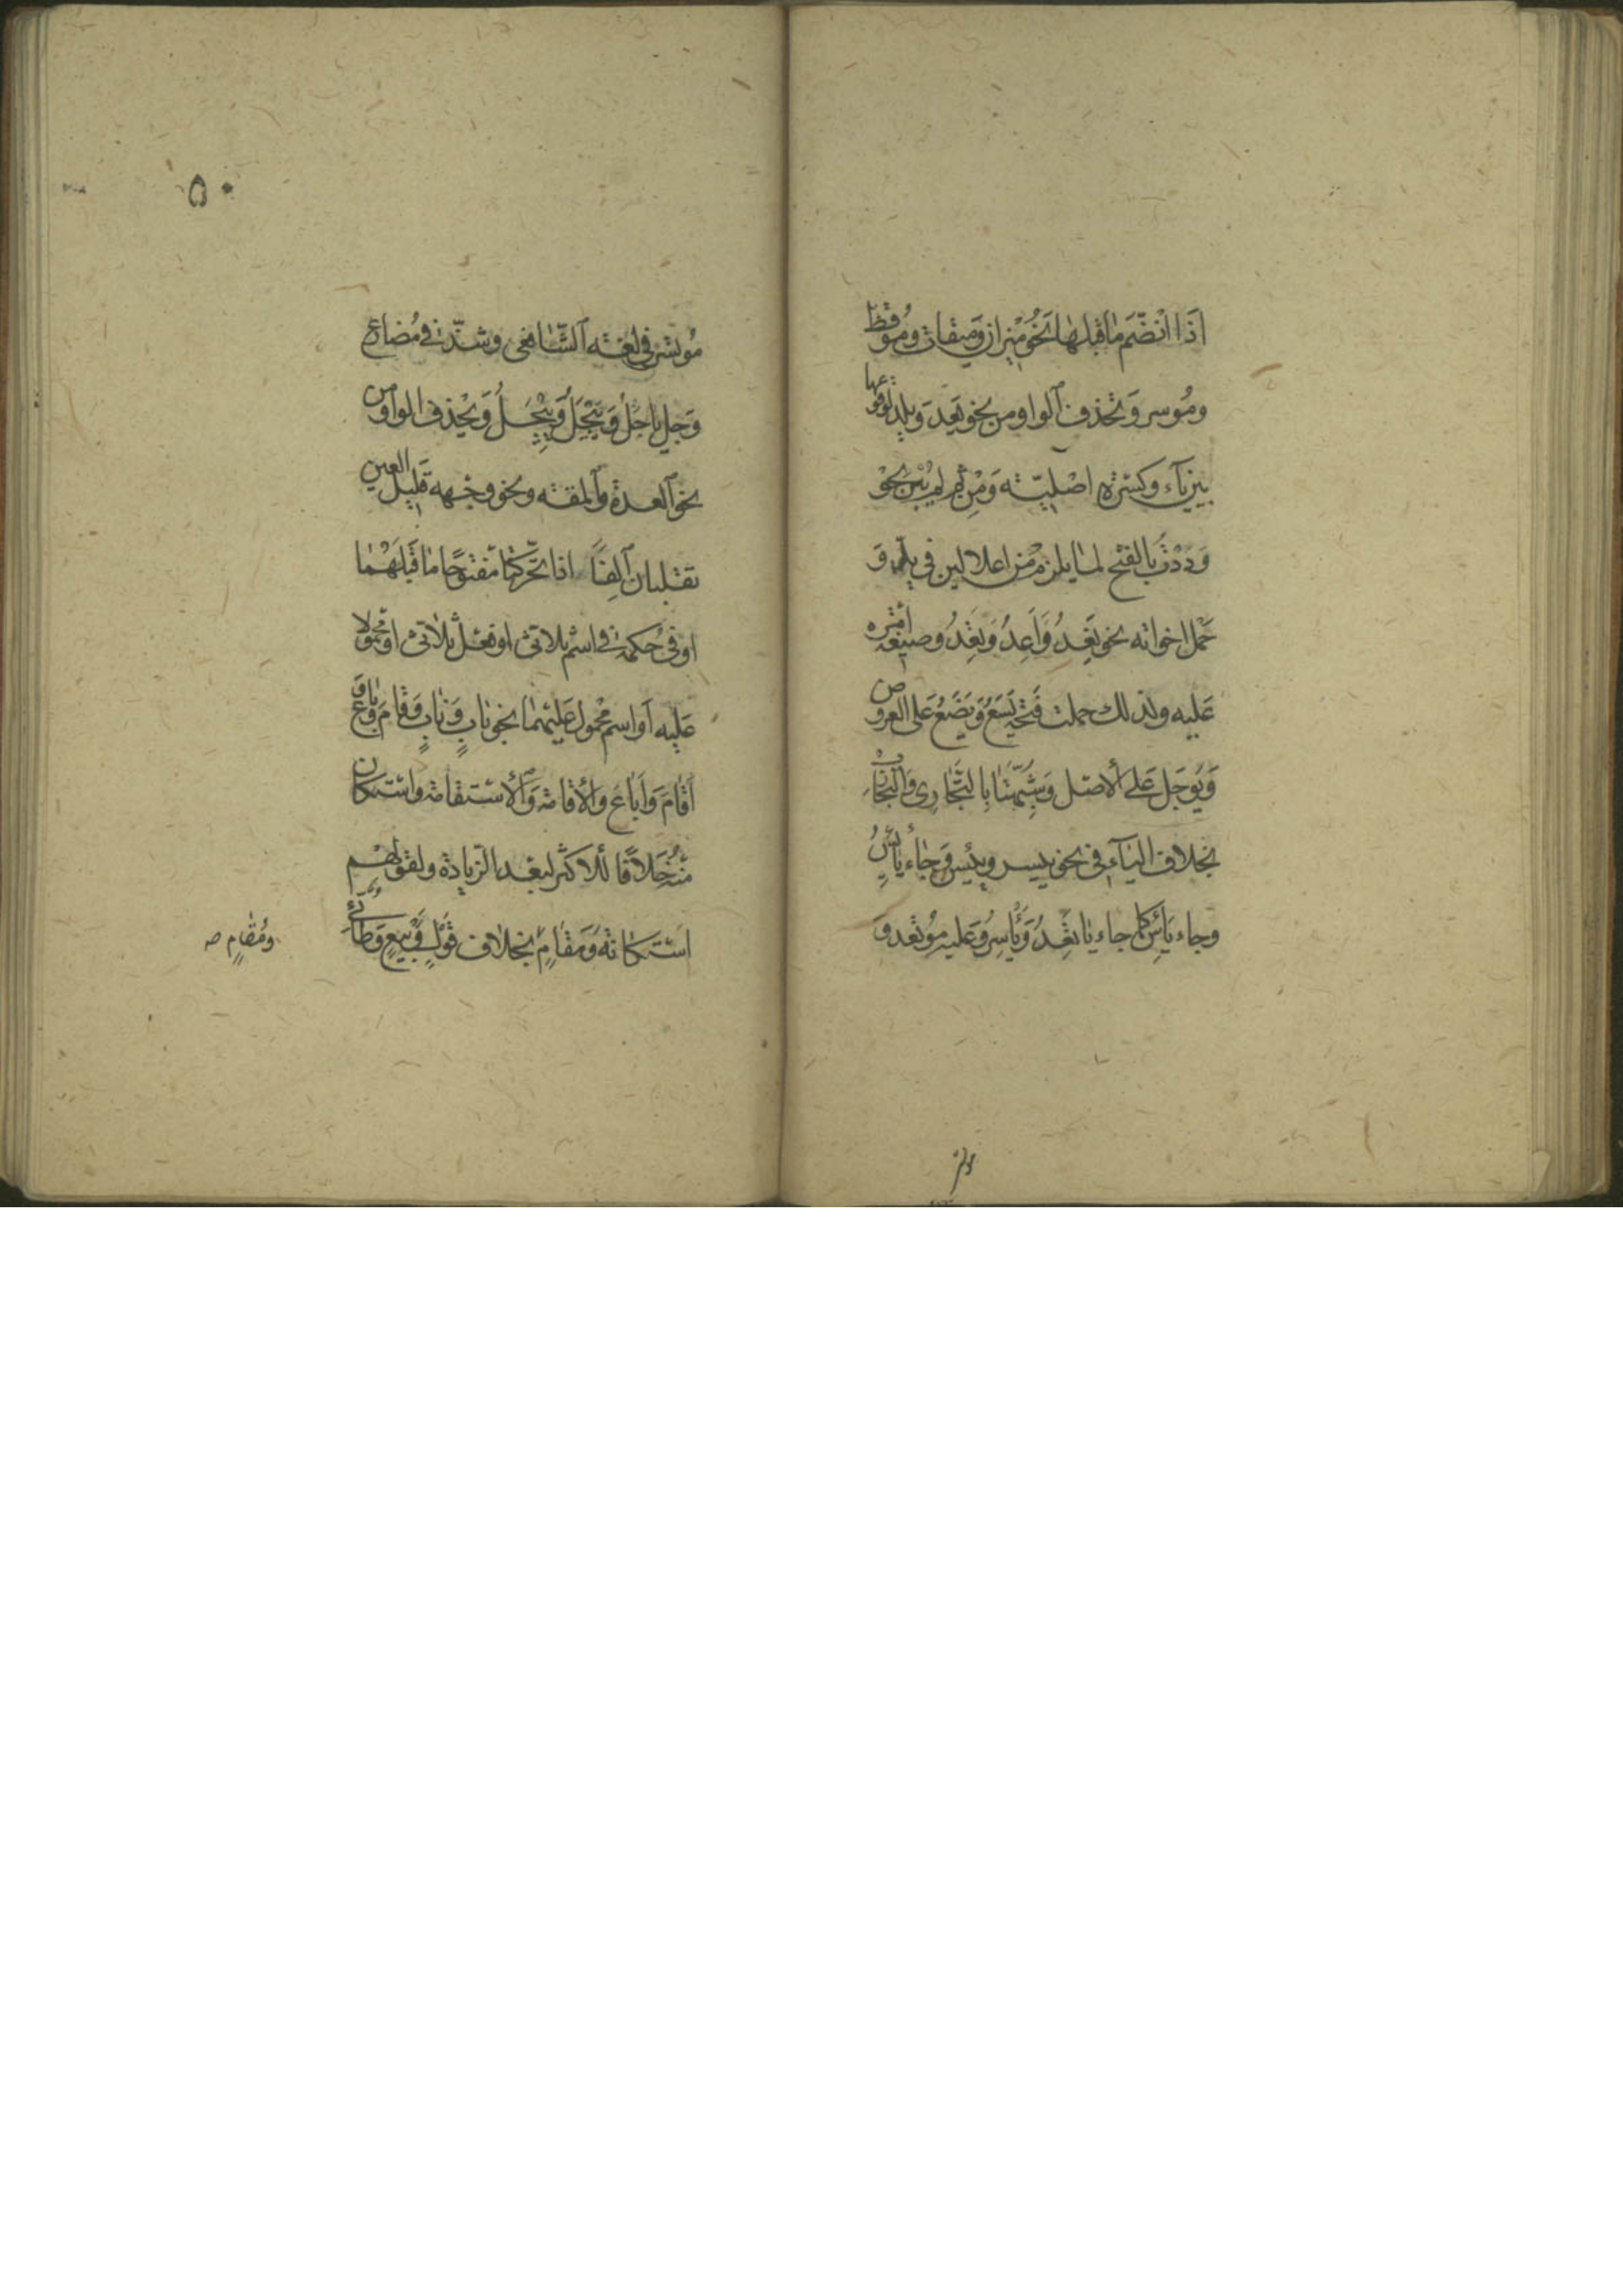 اذا انضم ما قبلها نحو ميزان وميقات وموقظ
وموسر وتحذف الواو من نحو يعد ويلد لوقوعها
بين ياء وكسرة اصلية ومن ثم لم يبن نحو
وددت بالفتح لما يلزم من اعلالين في يدّ و
حمل اخواته نحو تعد واعد ونعد وصيغة أمره
عليه ولذلك حملت فتحة يسع ويضع على العروض
ويوجل على الأصل وشبهتا بالتجاري والتجارب
بخلاف الياء في نحو ييسر وييئس وجاء يائس
وجاء يائس كما جاء ياتعد وياتسر وعليه موتعد و
موتسر في لغة الشافعي وشذ في مضارع
وجل ياجل وييجل وييجل ويحذف الواو من
نحو العدة والمقة ونحو وجهة قليل العين
تقلبان ألفا اذا تحركتا مفتوحا ما قبلهما
او في حكمه في اسم ثلاثي او فعل ثلاثي او محمولا
عليه او اسم محمول عليهما نحو باب وناب وقام وباع و
أقام وأباع والأقامة والأستقامة واستكان
منه خلافا للاكثر لبعد الزيادة ولقولهم
استكانة ومقام بخلاف قول وبيع وطائي
ومقام صح
٥٠